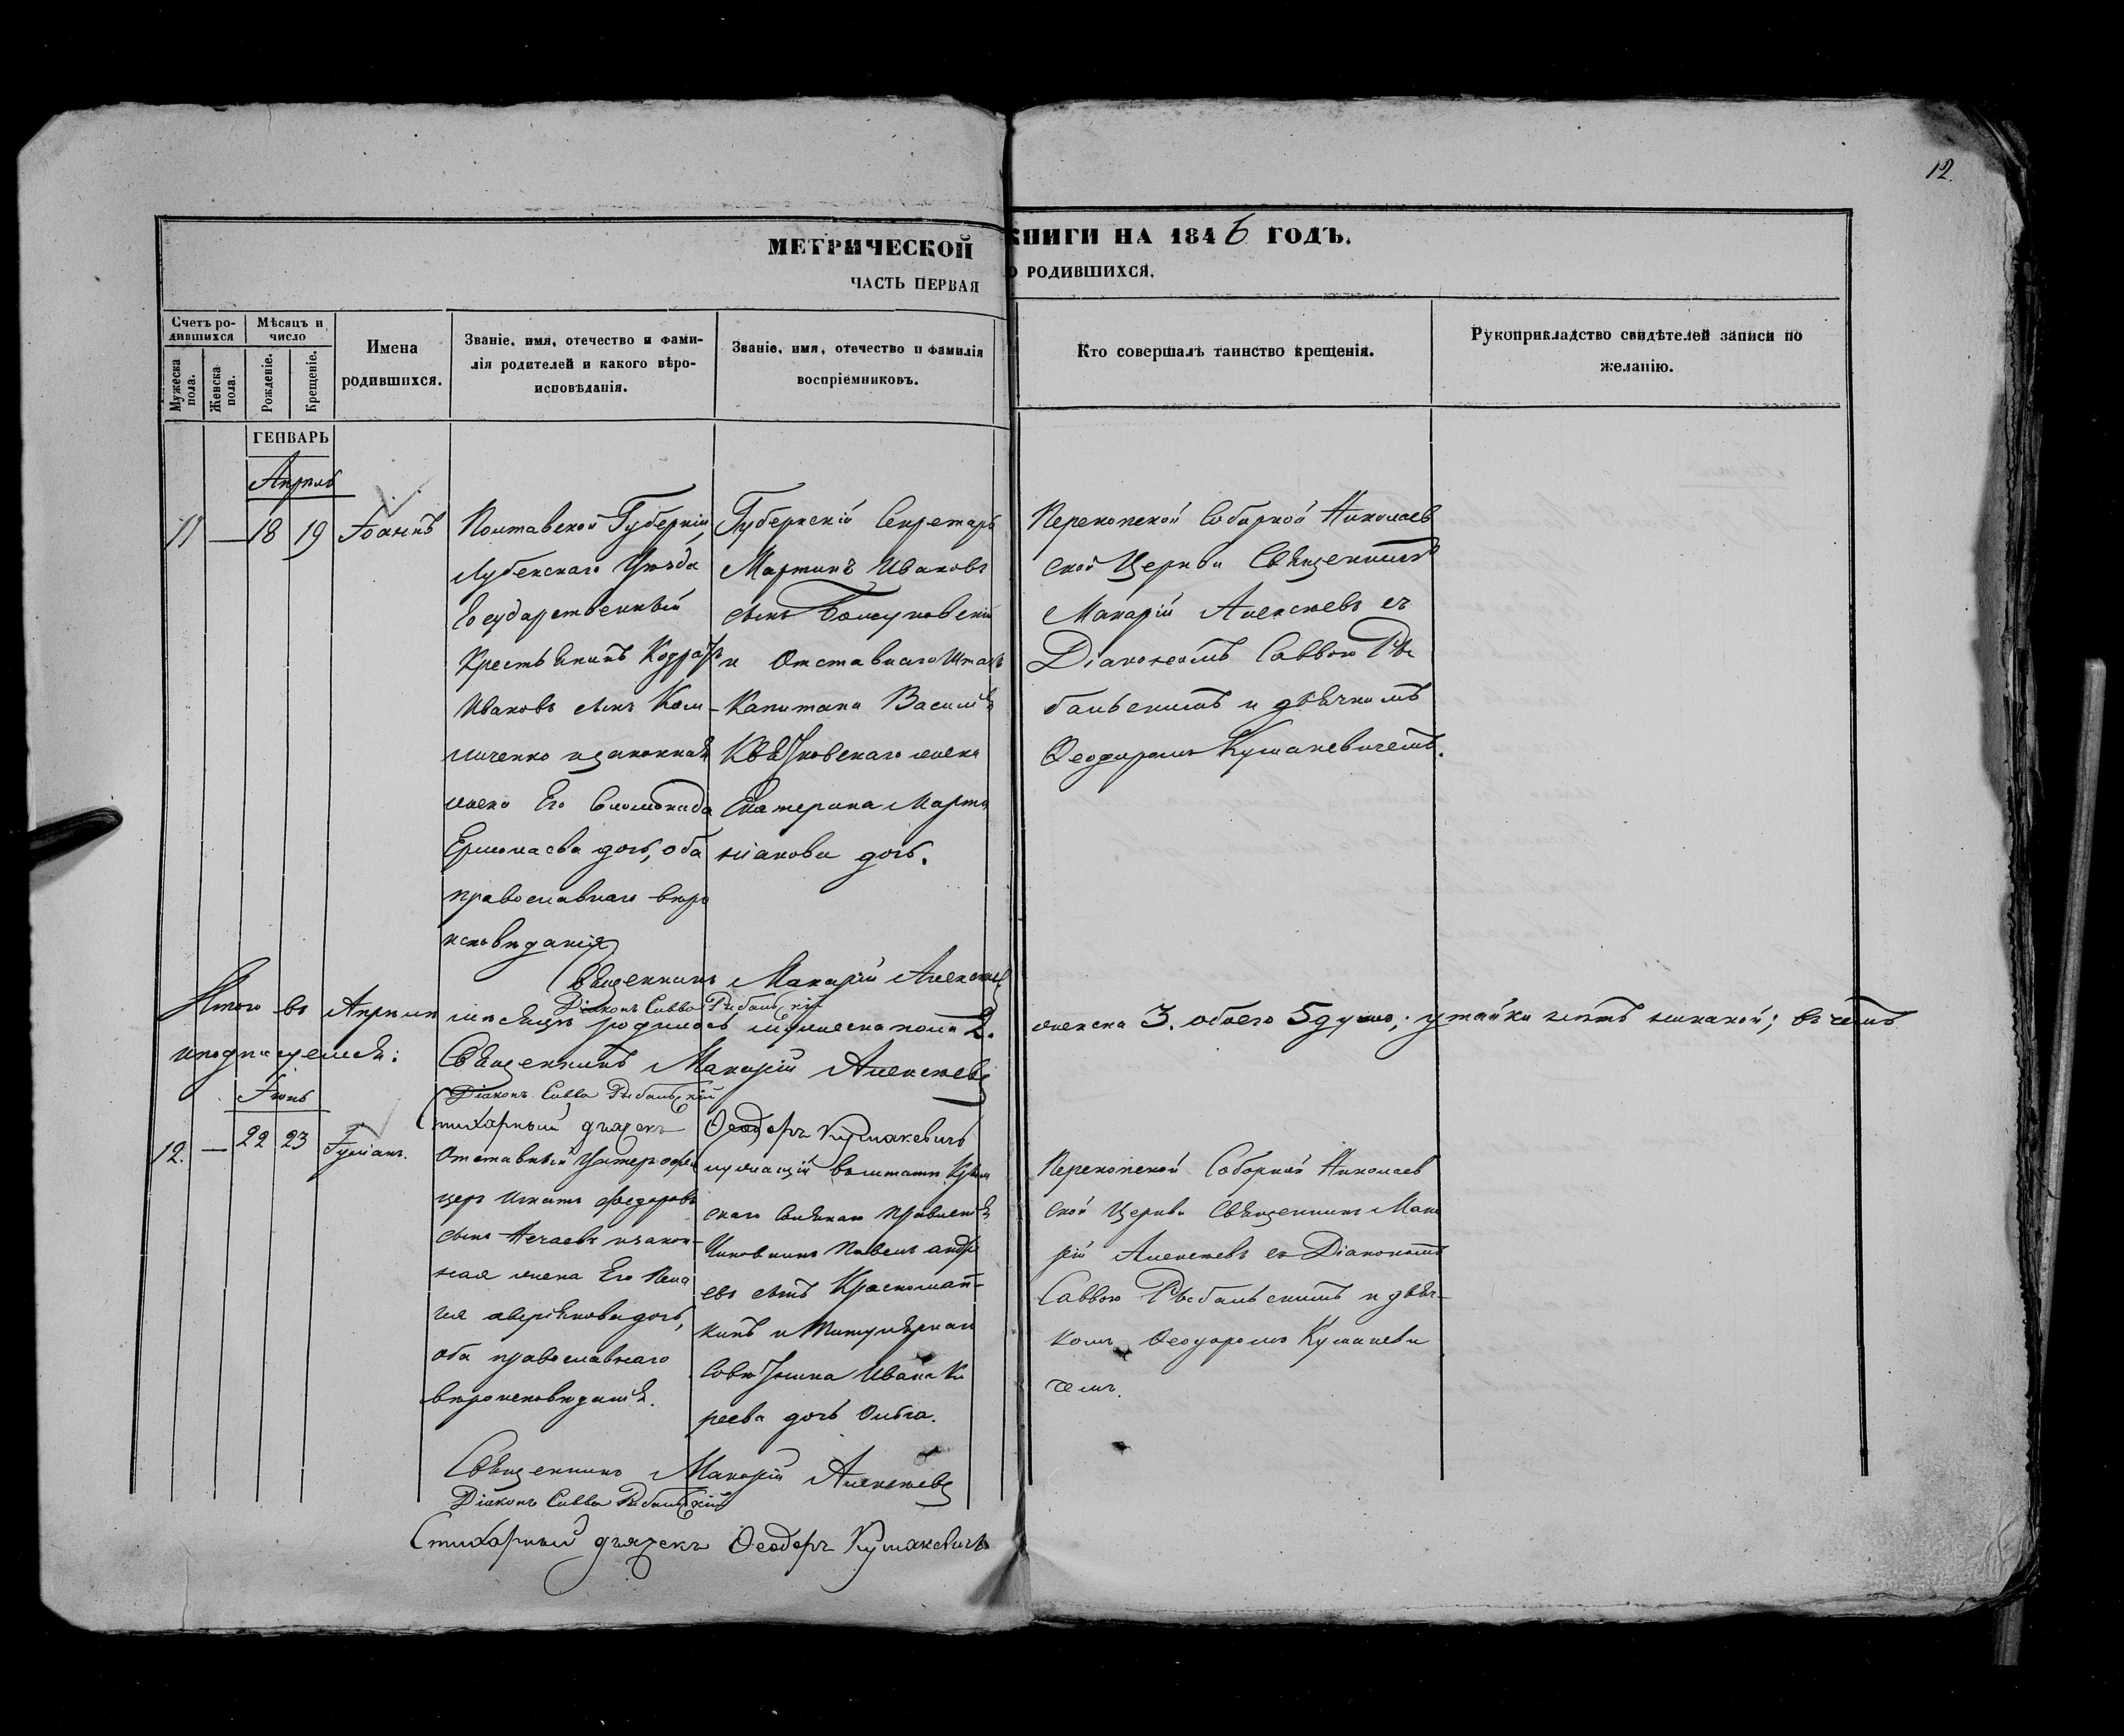 12.
МЕТРИЧЕСКОЙ КНИГИ НА 1846 ГОДЪ.
ЧАСТЬ ПЕРВАЯ О РОДИВШИХСЯ.
Счетъ ро-
дившихся
Мужеска пола.
Женска пола.
Мѣсяцъ и
число
Рожденіе.
Крещеніе.
Имена
родившихся.
Званіе, имя, отечество и фами-
лія родителей и какого вѣро-
исповѣданія.
Званіе, имя, отечество и фамилія
воспріемниковъ.
Кто совершалъ таинство крещенія.
Рукоприкладство свидѣтелей записи по
желанію.
ГЕНВАРЬ
Апрѣль
11 — 18 19 Іоаннъ
Полтавской Губерніи,
Лубенскаго Уѣзда
Государственный
Крестьянинъ
Ивановъ сынъ
и законная
жена Его
дочь, оба
православнаго вѣро
исповѣданія
Губернскій Секретарь
Мартинъ Ивановъ
сынъ
и Отставнаго Штабъ
Капитана
жена
Екатерина Марти
ніанова дочь.
Перекопской Соборной Николаев
ской Церкви Священникъ
Макарій Алексѣевъ съ
Діакономъ Саввою Ры
бальскимъ и дьячкомъ
Ѳеодоромъ Кушакевичемъ.
Священникъ Макарій Алексѣевъ
Діаконъ Савва Рыбальскій
Итого въ Апрѣлѣ мѣсяцѣ родилось мужеска пола 2. женска 3. обоего 5 душъ; утайки нѣтъ никакой; въ чемъ
и подписуемся:
Священникъ Макарій Алексѣевъ
Діаконъ Савва Рыбальскій
Стихарный дьячекъ Ѳеодоръ Кушакевичъ
Іюнь
12. — 22 23 Іуліанъ.
Отставный Унтеръ офи
церъ Игнатъ Ѳедоровъ
сынъ Нечаевъ и закон-
ная жена Его Пела
гія дочь,
оба православнаго
вѣроисповѣданія.
Правленія
Чиновникъ Павелъ Андре
евъ сынъ
и Титулярнаго
Совѣтника Ивана Ки
реева дочь Ольга.
Перекопской Соборной Николаев
ской Церкви Священникъ Мака
рій Алексѣевъ съ Діакономъ
Саввою Рыбальскимъ и дьяч-
комъ Ѳеодоромъ Кушакеви
чемъ.
Священникъ Макарій Алексѣевъ
Діаконъ Савва Рыбальскій
Стихарный дьячекъ Ѳеодоръ Кушакевичъ